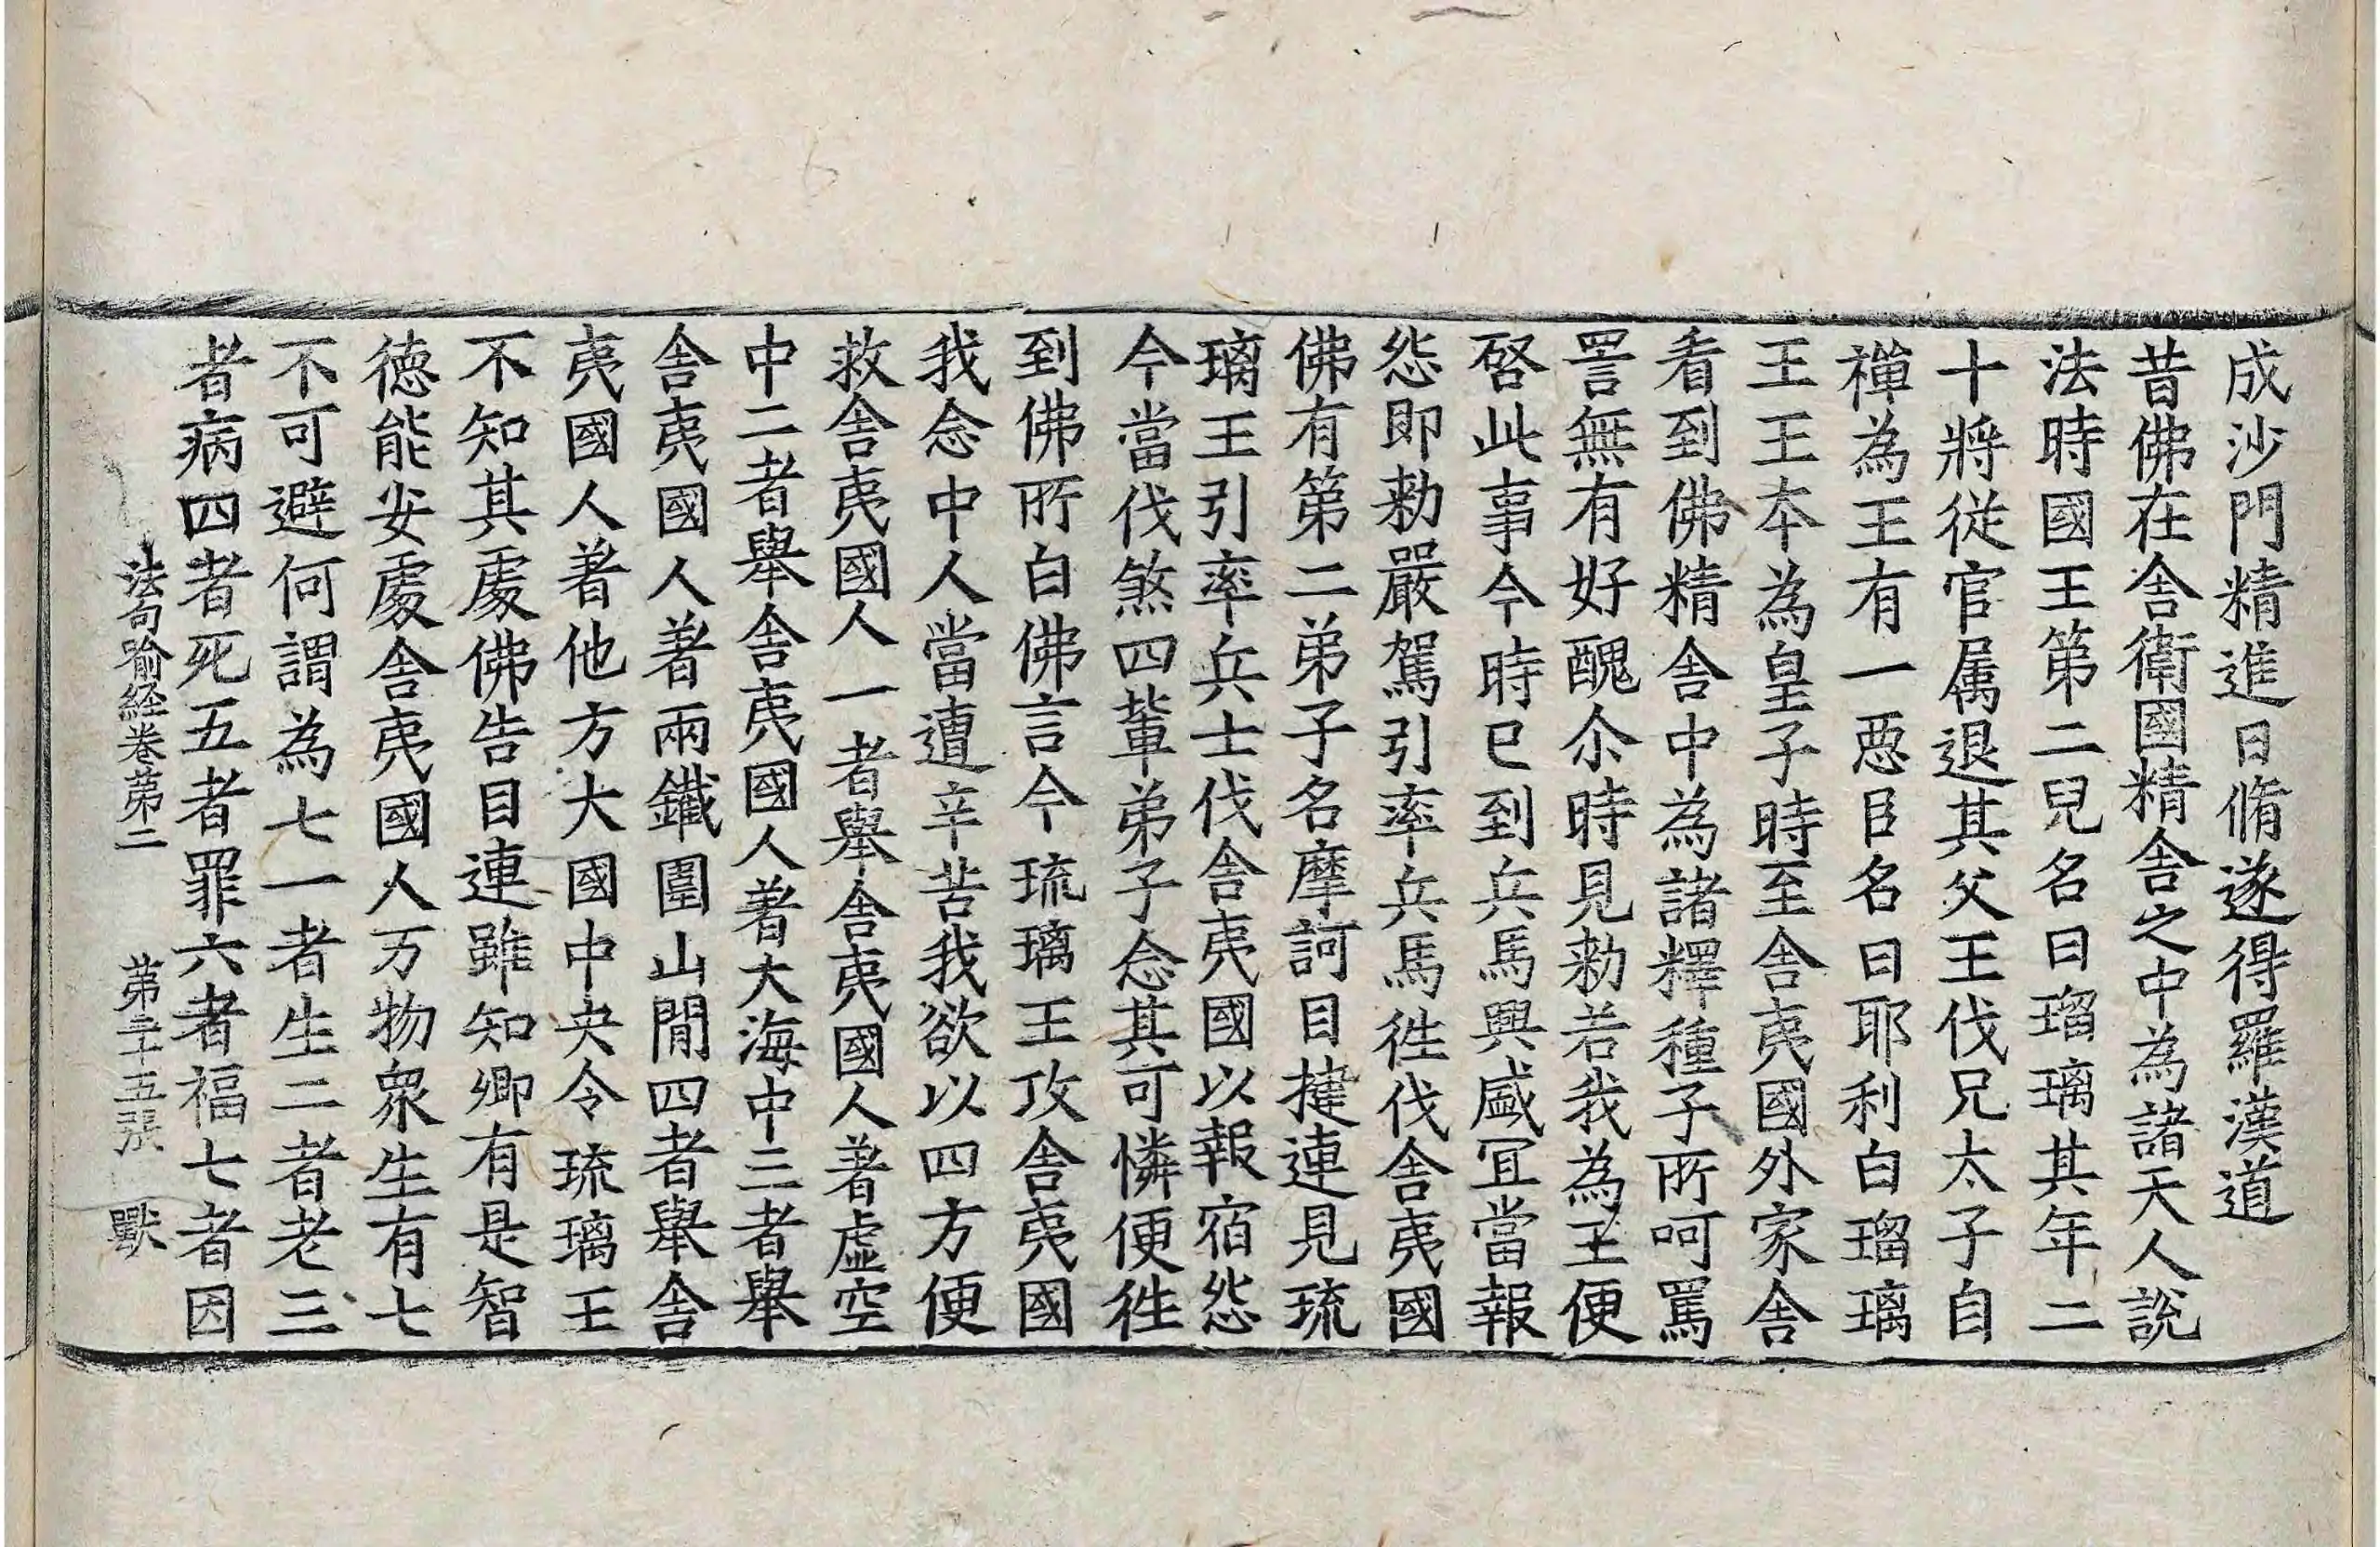 成沙門精進日脩遂得羅漢道
昔佛在舎衛國精舎之中為諸天人說
法時國王第二兒名曰瑠璃其年二
十將從官属退其父王伐兄太子自
禪為王有一惡臣名曰耶利白瑠璃
王王本為皇子時至舎夷國外家舎
看到佛精舎中為諸釋種子所呵罵
詈無有好醜尒時見勑若我為王便
啓此事今時已到兵馬興盛冝當報
怨即勑嚴駕引率兵馬徃伐舎夷國
佛有第二弟子名摩訶目揵連見琉
璃王引率兵士伐舎夷國以報宿怨
今當伐煞四輩弟子念其可憐便徃
到佛所白佛言今琉璃王攻舎夷國
我念中人當遭辛苦我欲以四方便
救舎夷國人一者舉舎夷國人著虛空
中二者舉舎夷國人著大海中三者舉
舎夷國人著兩鐵圍山閒四者舉舎
夷國人著他方大國中央令琉璃王
不知其處佛告目連雖知卿有是智
徳能安處舎夷國人万物衆生有七
不可避何謂為七一者生二者老三
者病四者死五者罪六者福七者因
法句喻経卷第二 第三十五張 獸